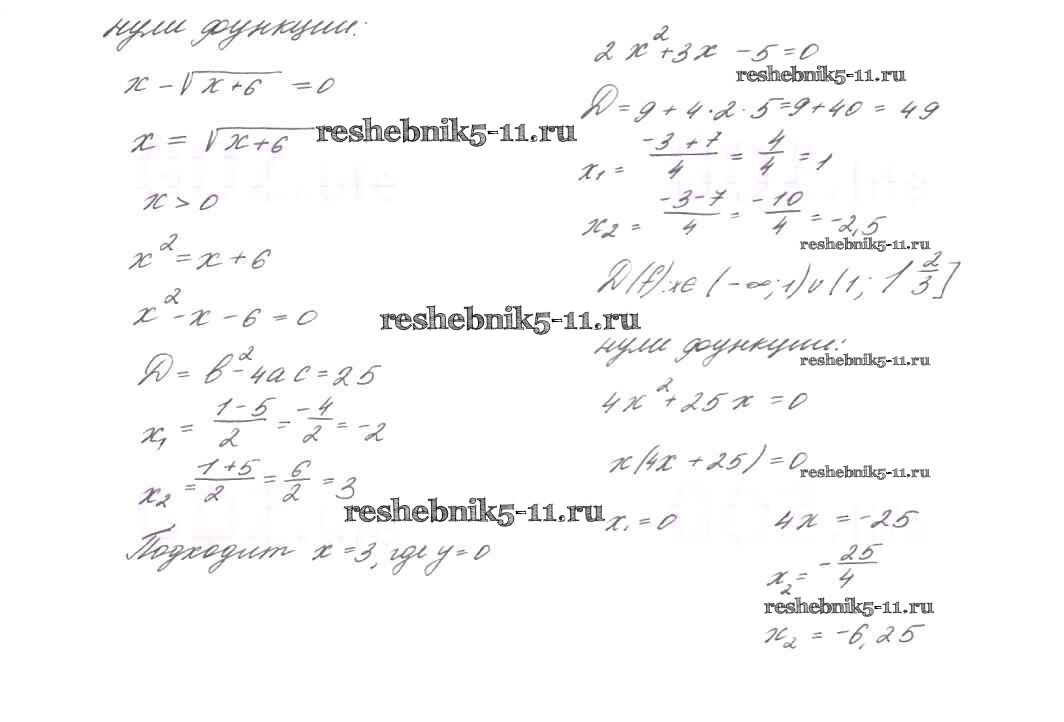 нули функции:
x - √x+6 = 0
x = √x+6
reshebnik5-11.ru
x > 0
x² = x + 6
x² - x - 6 = 0
reshebnik5-11.ru
D = b² - 4ac = 25
x₁ = (1-5)/2 = -4/2 = -2
x₂ = (1+5)/2 = 6/2 = 3
reshebnik5-11.ru
Подходит x = 3, где y = 0
2x² + 3x - 5 = 0
reshebnik5-11.ru
D = 9 + 4·2·5 = 9 + 40 = 49
x₁ = (-3+7)/4 = 4/4 = 1
x₂ = (-3-7)/4 = -10/4 = -2,5
reshebnik5-11.ru
D(f): x ∈ (-∞; 1) ∪ (1; 1 2/3]
нули функции:
reshebnik5-11.ru
4x² + 25x = 0
x(4x + 25) = 0
reshebnik5-11.ru
x₁ = 0 4x = -25
x₂ = -25/4
reshebnik5-11.ru
x₂ = -6,25